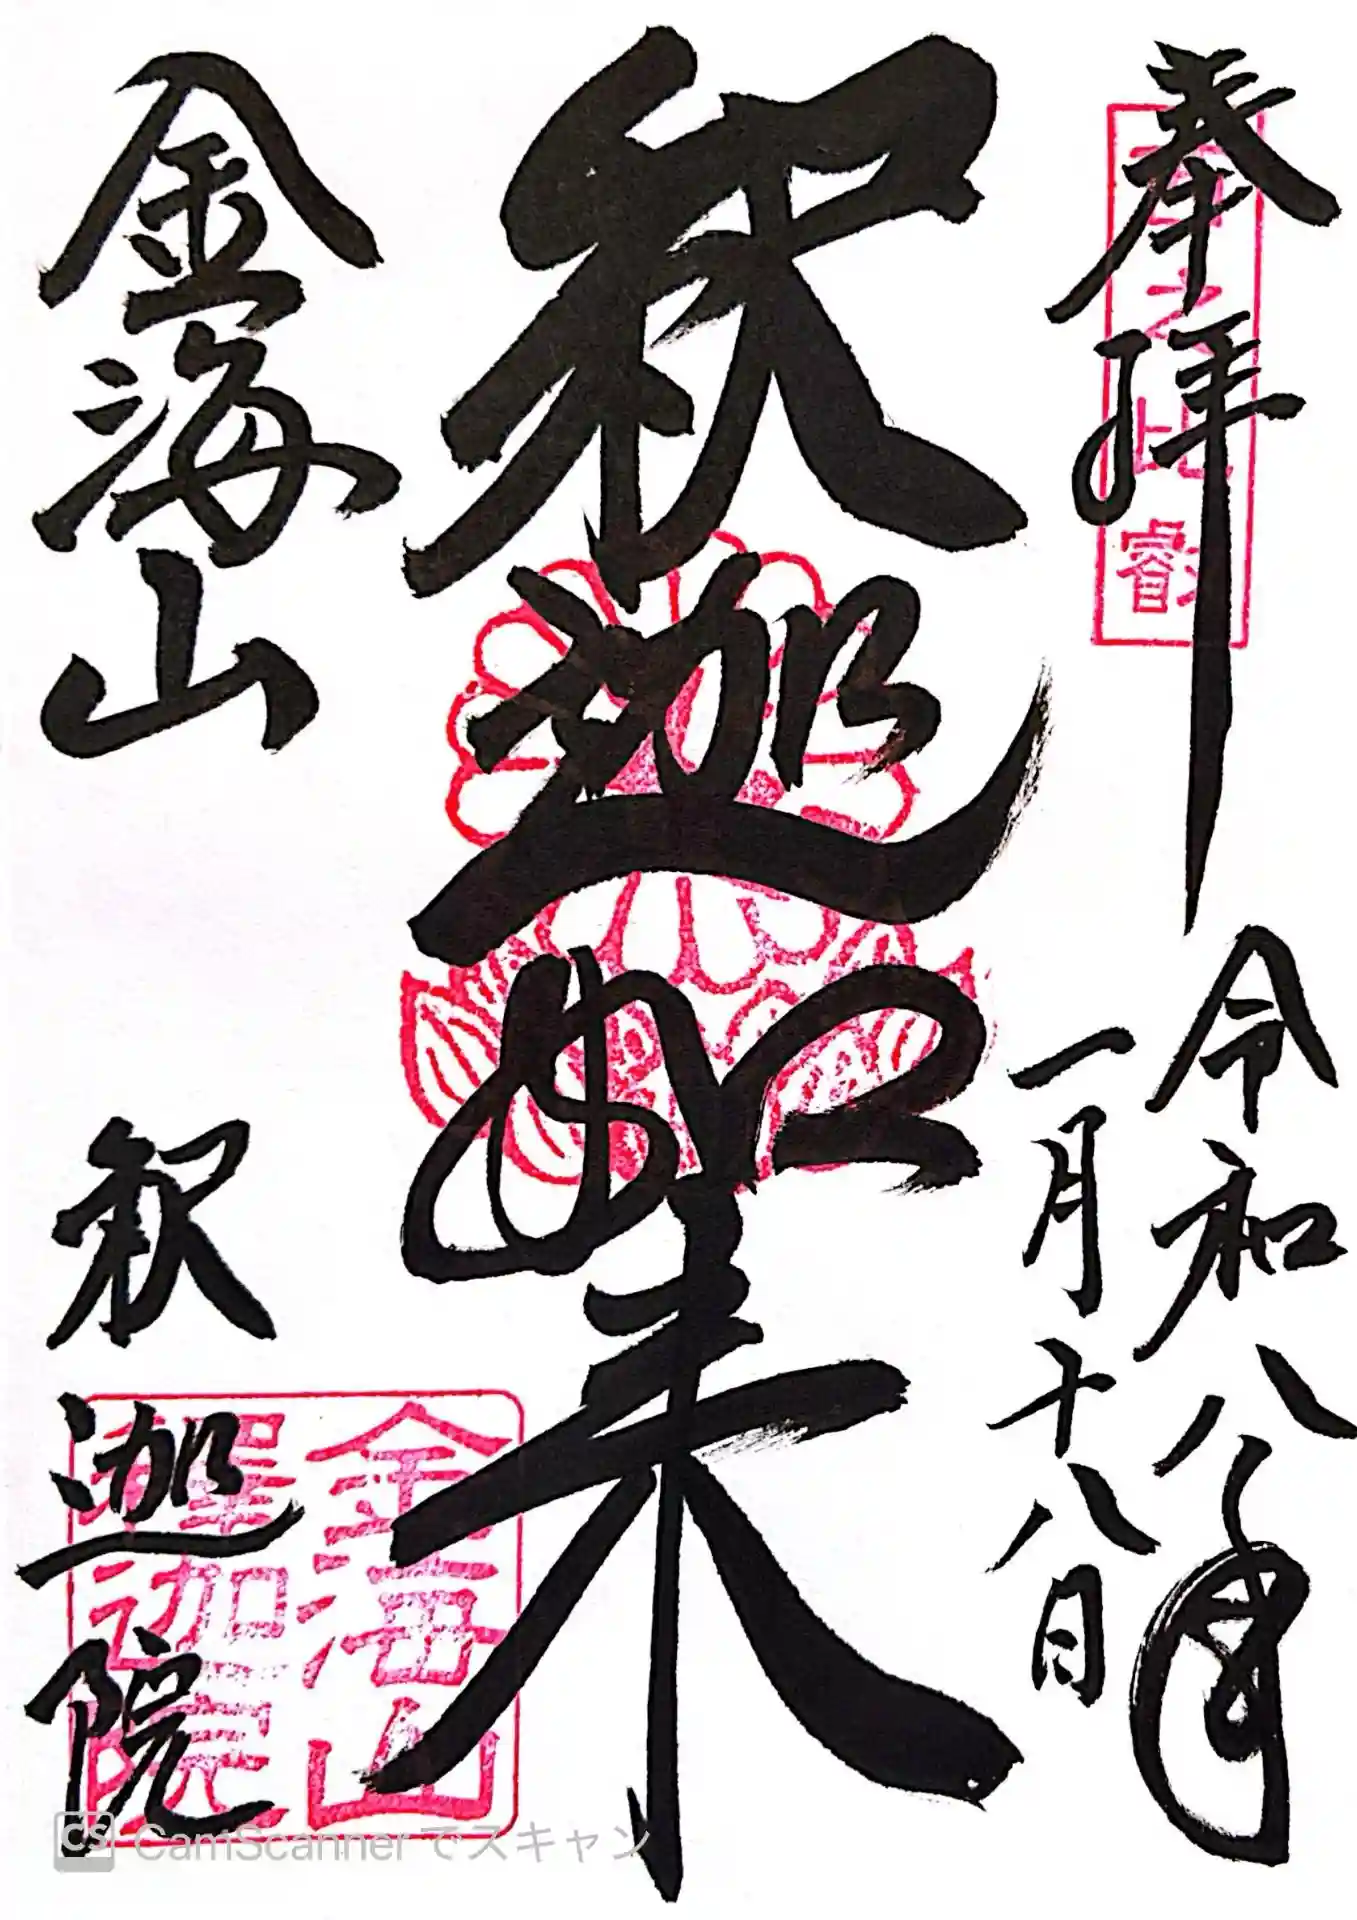 奉拝
令和八年
一月十八日
釈迦如来
金海山
釈迦院
之比叡
金海山
釋迦院
CS CamScannerでスキャン